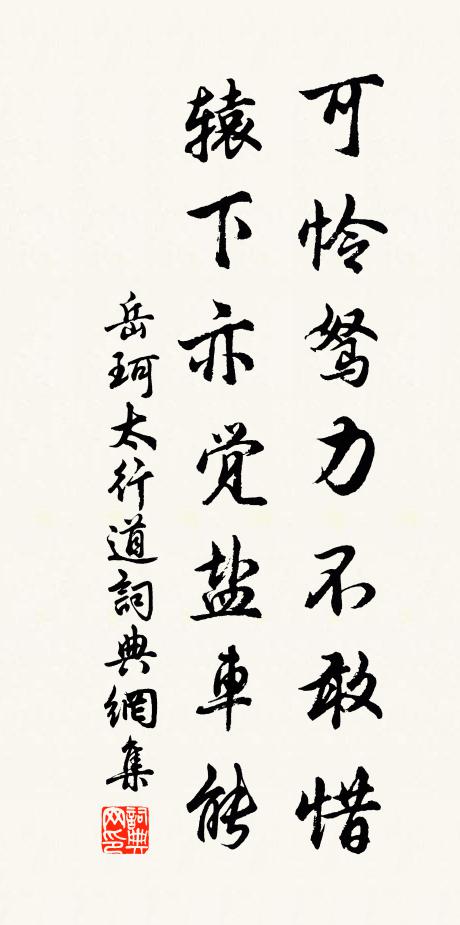 可怜驽力不敢惜
辕下亦觉盐車能
岳珂太行道詞典網集
詞典网印